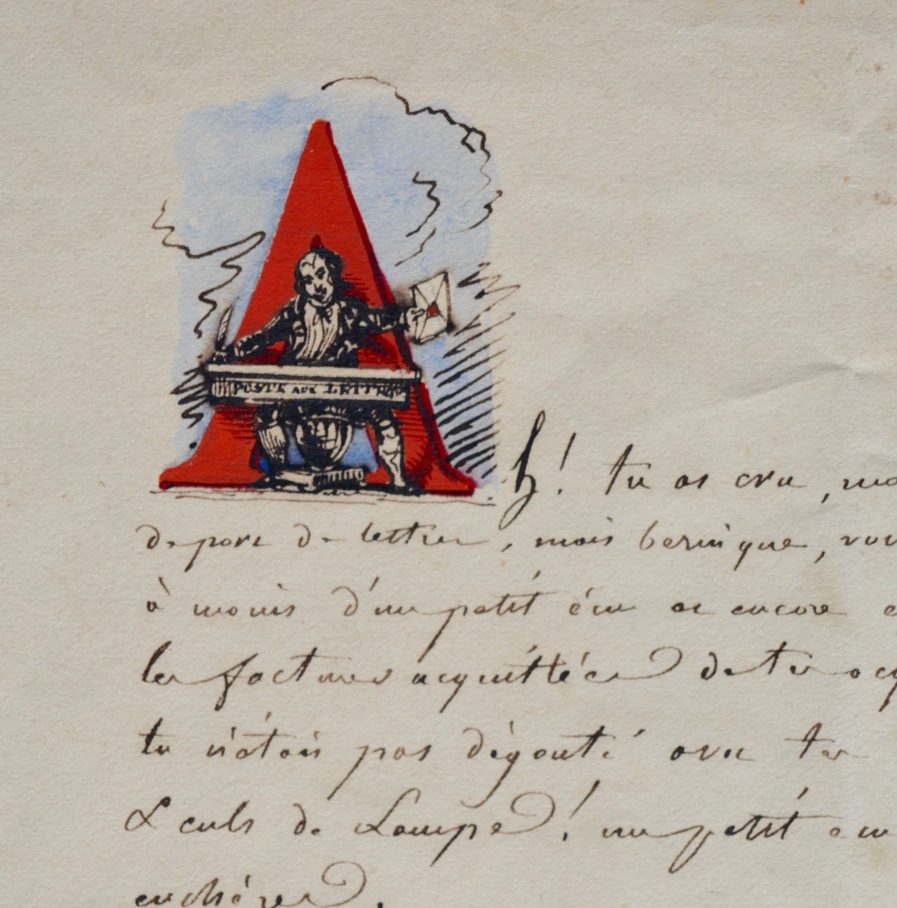 POSTE AUX LETTRES
Ah! tu as cru,
de port de lettres, mais bernique,
à moins d'un petit écu et encore
les factures acquittées de tes
tu n'étais pas dégouté avec tes
& culs de Lampe! un petit écu
enchères.